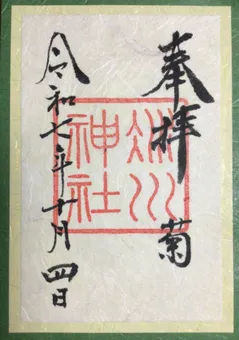 奉拝 菊
川神社
令和七年十月四日